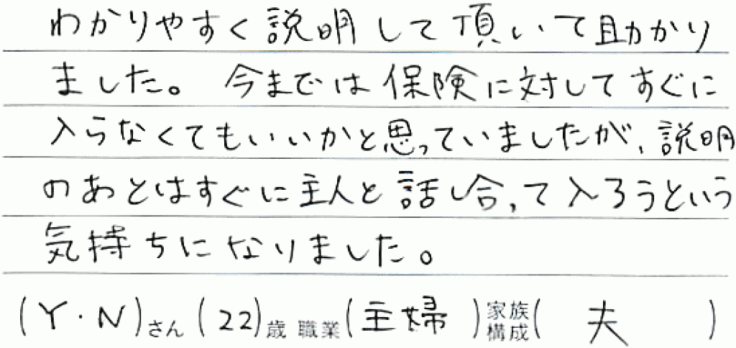 わかりやすく説明して頂いて助かり
ました。今までは保険に対してすぐに
入らなくてもいいかと思っていましたが、説明
のあとはすぐに主人と話し合って入ろうという
気持ちになりました。
(Y・N)さん(22)歳 職業(主婦)家族構成(夫)